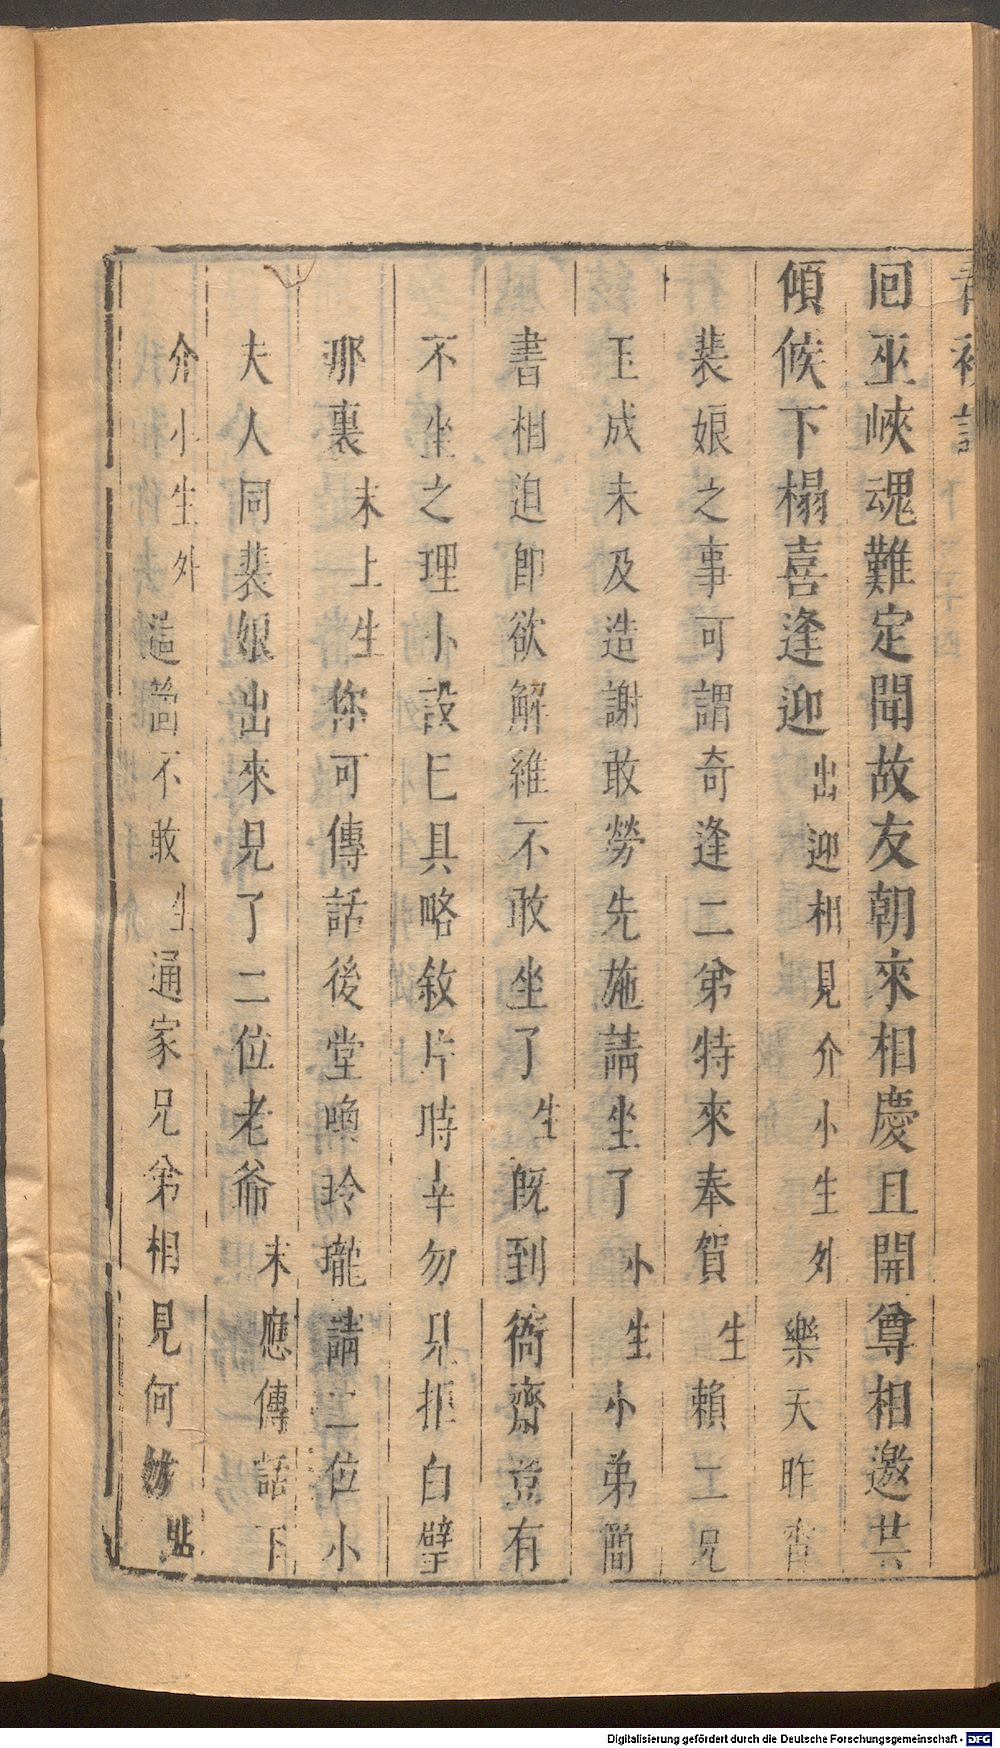 青衫記
回巫峽魂難定聞故友朝來相慶且開尊相邀共
傾候下榻喜逢迎出迎相見介小生外樂天昨宵
裴娘之事可謂奇逢二弟特來奉賀生賴二兄
玉成未及造謝敢勞先施請坐了小生小弟簡
書相迫即欲解維不敢坐了生既到衙齋豈有
不坐之理小設已具略敘片時幸勿見拒白璧
那裏末上生你可傳話後堂喚玲瓏請二位小
夫人同裴娘出來見了二位老爺末應傳話下
介小生外這箇不敢生通家兄弟相見何妨
Digitalisierung gefördert durch die Deutsche Forschungsgemeinschaft - DFG